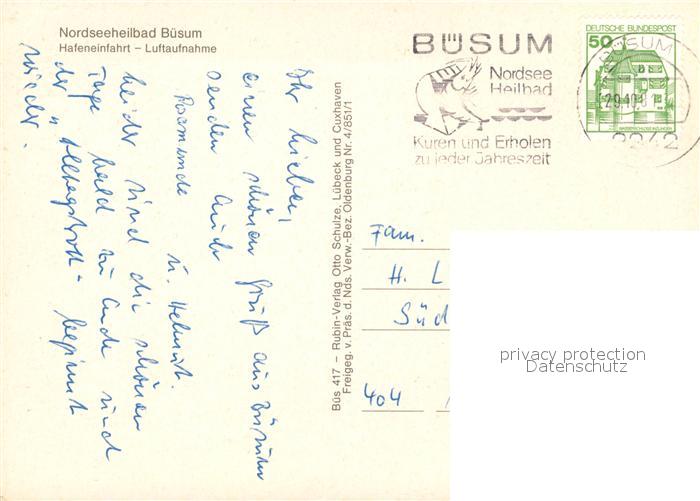 Nordseeheilbad Büsum
Hafeneinfahrt – Luftaufnahme
Ihr lieben,
einen schönen Gruß aus Büsum
senden Euch
Rosemunde u. Helmut.
Leider sind die schönen
Tage bald zu Ende und
der "Alltagstrott" beginnt
wieder.
Büs 417 – Rubin-Verlag Otto Schulze, Lübeck und Cuxhaven
Freigeg. v. Präs. d. Nds. Verw.-Bez. Oldenburg Nr. 4/851/1
BÜSUM
Nordsee
Heilbad
Kuren und Erholen
zu jeder Jahreszeit
DEUTSCHE BUNDESPOST
50
BÜSUM
2242
Fam.
H. L
Süd
404
privacy protection
Datenschutz